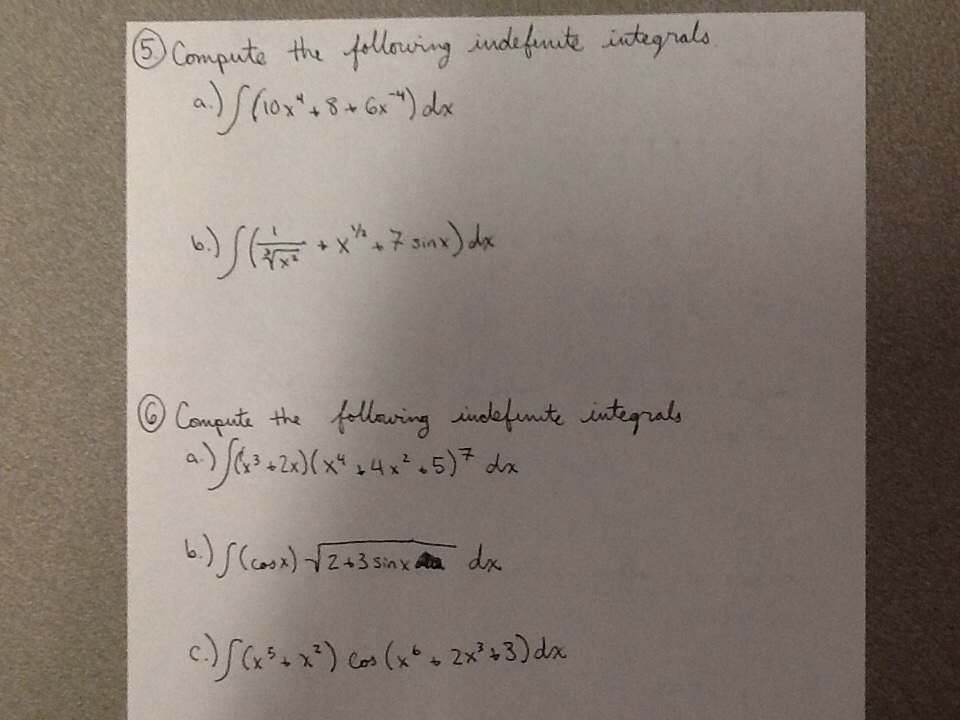 5. Compute the following indefinite integrals.
a.) ∫(10x⁴ + 8 + 6x⁻⁴) dx
b.) ∫(1/∛x² + x^1/2 + 7 sinx) dx
6 Compute the following indefinite integrals
a.) ∫(x³ + 2x)(x⁴ + 4x² + 5)⁷ dx
b.) ∫(cosx) √(2+3 sinx) dx
c.) ∫(x⁵ + x²) cos (x⁶ + 2x³ + 3) dx